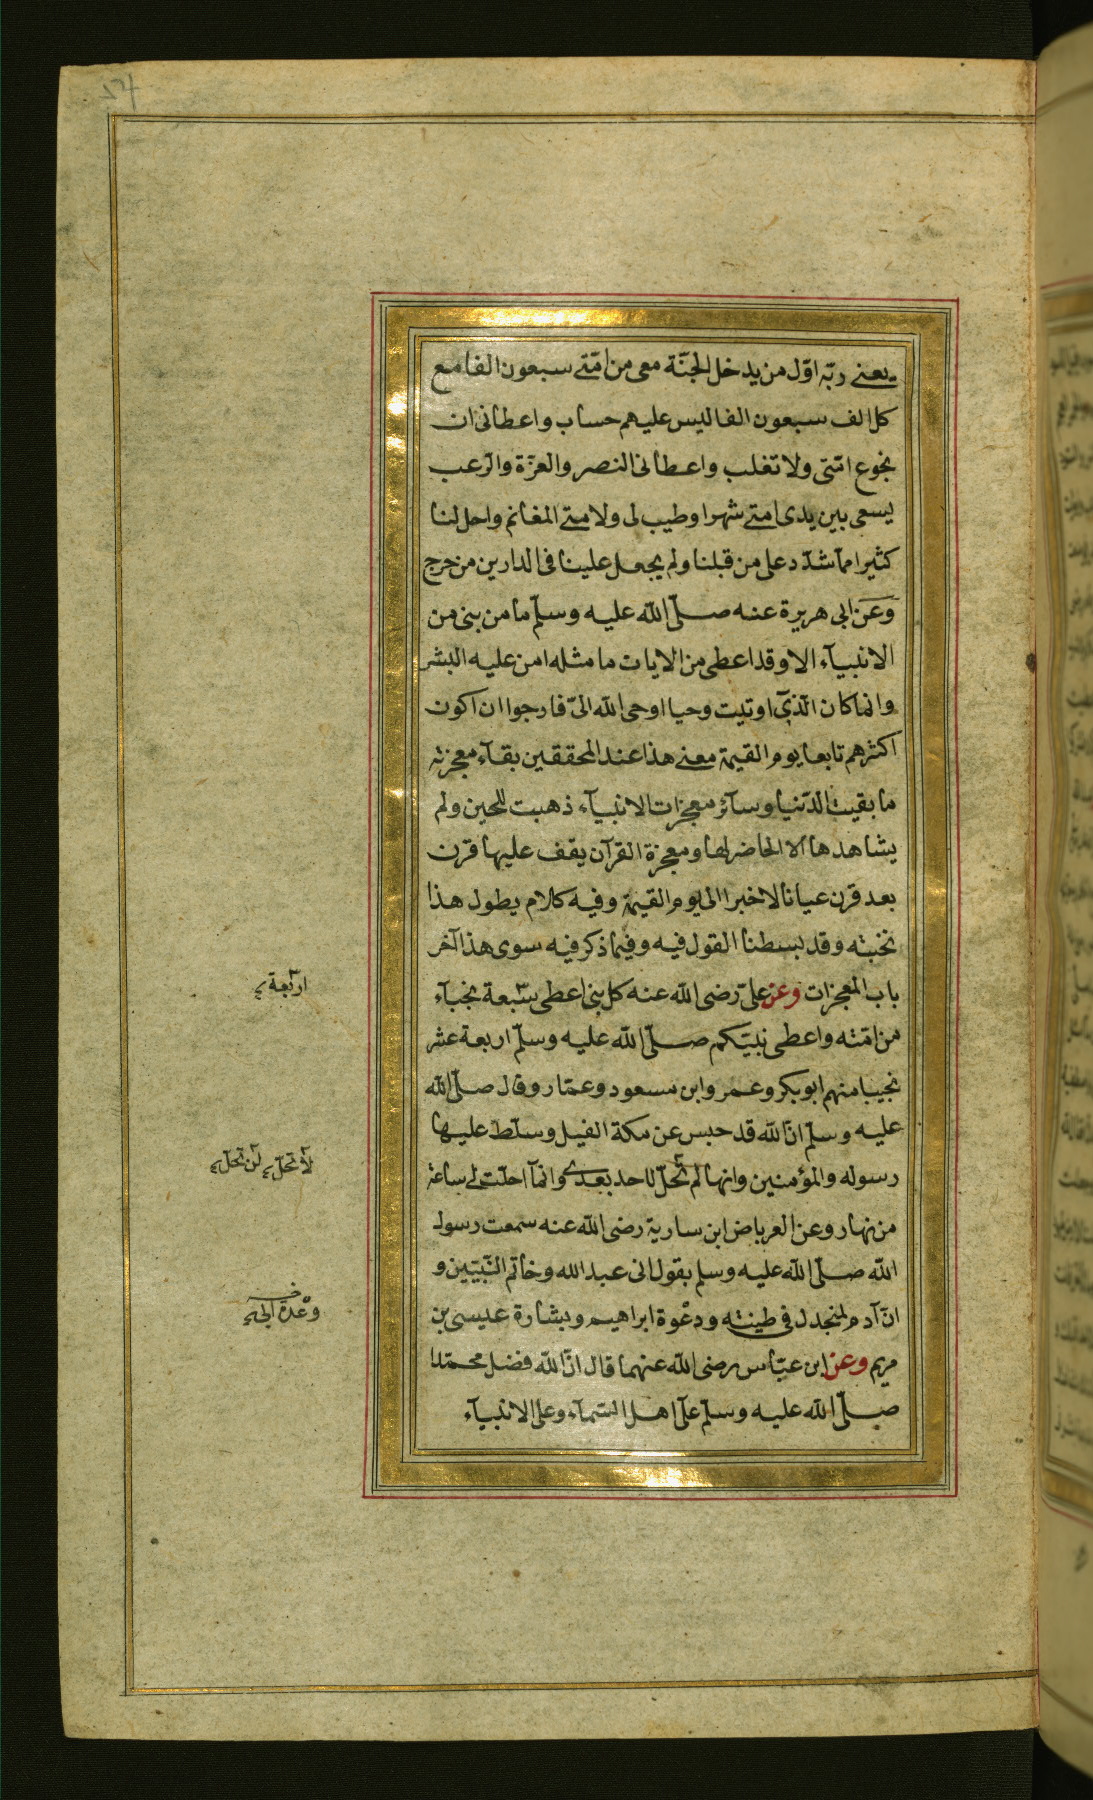 يعنى ربّه اوّل من يدخل الجنّة معى من امّتى سبعون الفا مع
كل الف سبعون الفا ليس عليهم حساب واعطانى ان
تجوع امّتى ولا تغلب واعطانى النصر والعزّة والرّعب
يسعى بين يدى امتى شهرا وطيب لى ولامتى المغانم واحل لنا
كثيرا ممّا شدّد على من قبلنا ولم يجعل علينا فى الدارين من حرج
وعن ابى هريرة عنه صلّى الله عليه وسلّم ما من نبى من
الانبيآء الا وقد اعطى من الايات ما مثله امن عليه البشر
وانما كان الّذى اوتيت وحيا اوحى الله الىّ فارجوا ان اكون
اكثرهم تابعا يوم القيمة معنى هذا عند المحققين بقآء معجزته
ما بقيت الدّنيا وسآئر معجزات الانبيآء ذهبت للحين ولم
يشاهدها الا الحاضر لها ومعجزة القرآن يقف عليها قرن
بعد قرن عيانا لا خبرا الى يوم القيمة وفيه كلام يطول هذا
نخبته وقد بسطنا القول فيه وفيما ذكر فيه سوى هذا آخر
باب المعجزات وعن علىّ رضى الله عنه كل نبى اعطى سبعة نجبآء
من امّته واعطى نبيّكم صلّى الله عليه وسلّم اربعة عشر
نجيبا منهم ابو بكر وعمر وابن مسعود وعمّار وقال صلّى الله
عليه وسلّم انّ الله قد حبس عن مكة الفيل وسلّط عليها
رسوله والمؤمنين وانها لم تحلّ لاحد بعدى وانمآ احلّت لى ساعة
من نهار وعن العرباض ابن سارية رضى الله عنه سمعت رسول
الله صلّى الله عليه وسلم يقول انى عبد الله وخاتم النّبيّين و
انّ آدم لمنجدل فى طينته ودعوة ابراهيم وبشارة عيسى بن
مريم وعن ابن عبّاس رضى الله عنهما قال انّ الله فضل محمّدا
صلّى الله عليه وسلّم على اهل السّمآء وعلى الانبيآء
اربعة
لا تحلّ لن تحلّ